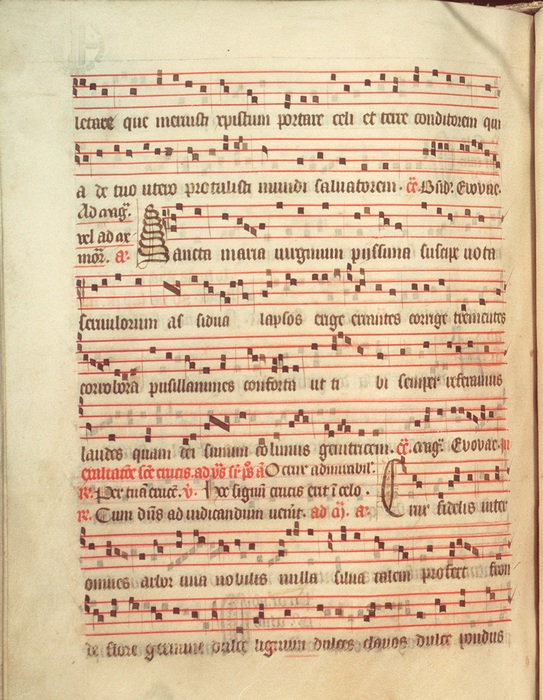 letare que meruisti xpistum portare celi et terre conditorem qui
a de tuo utero protulisti mundi saluatorem. cc. Bnd'. Evovae.
Ad mag'.
vel ad ar
mor. a.
Sancta maria uirginum pijssima suscipe uota
seruulorum as sidua lapsos erige errantes corrige trementes
corrobora pusillanimes conforta ut ti bi semper referamus
laudes quam dei sanum colimus genitricem. cc. mag'. Evovae. In
exaltacõe scẽ crucis. ad vs' a O crux admirabil'.
R. Per tuã crucẽ. v. Hoc signũ crucis erit ĩ celo.
R. Cum dñs ad iudicandum uenit. ad a. Crux fidelis inter
omnes arbor una nobilis nulla silua talem profert fron
de flore germine dulce lignum dulces clauos dulce pondus